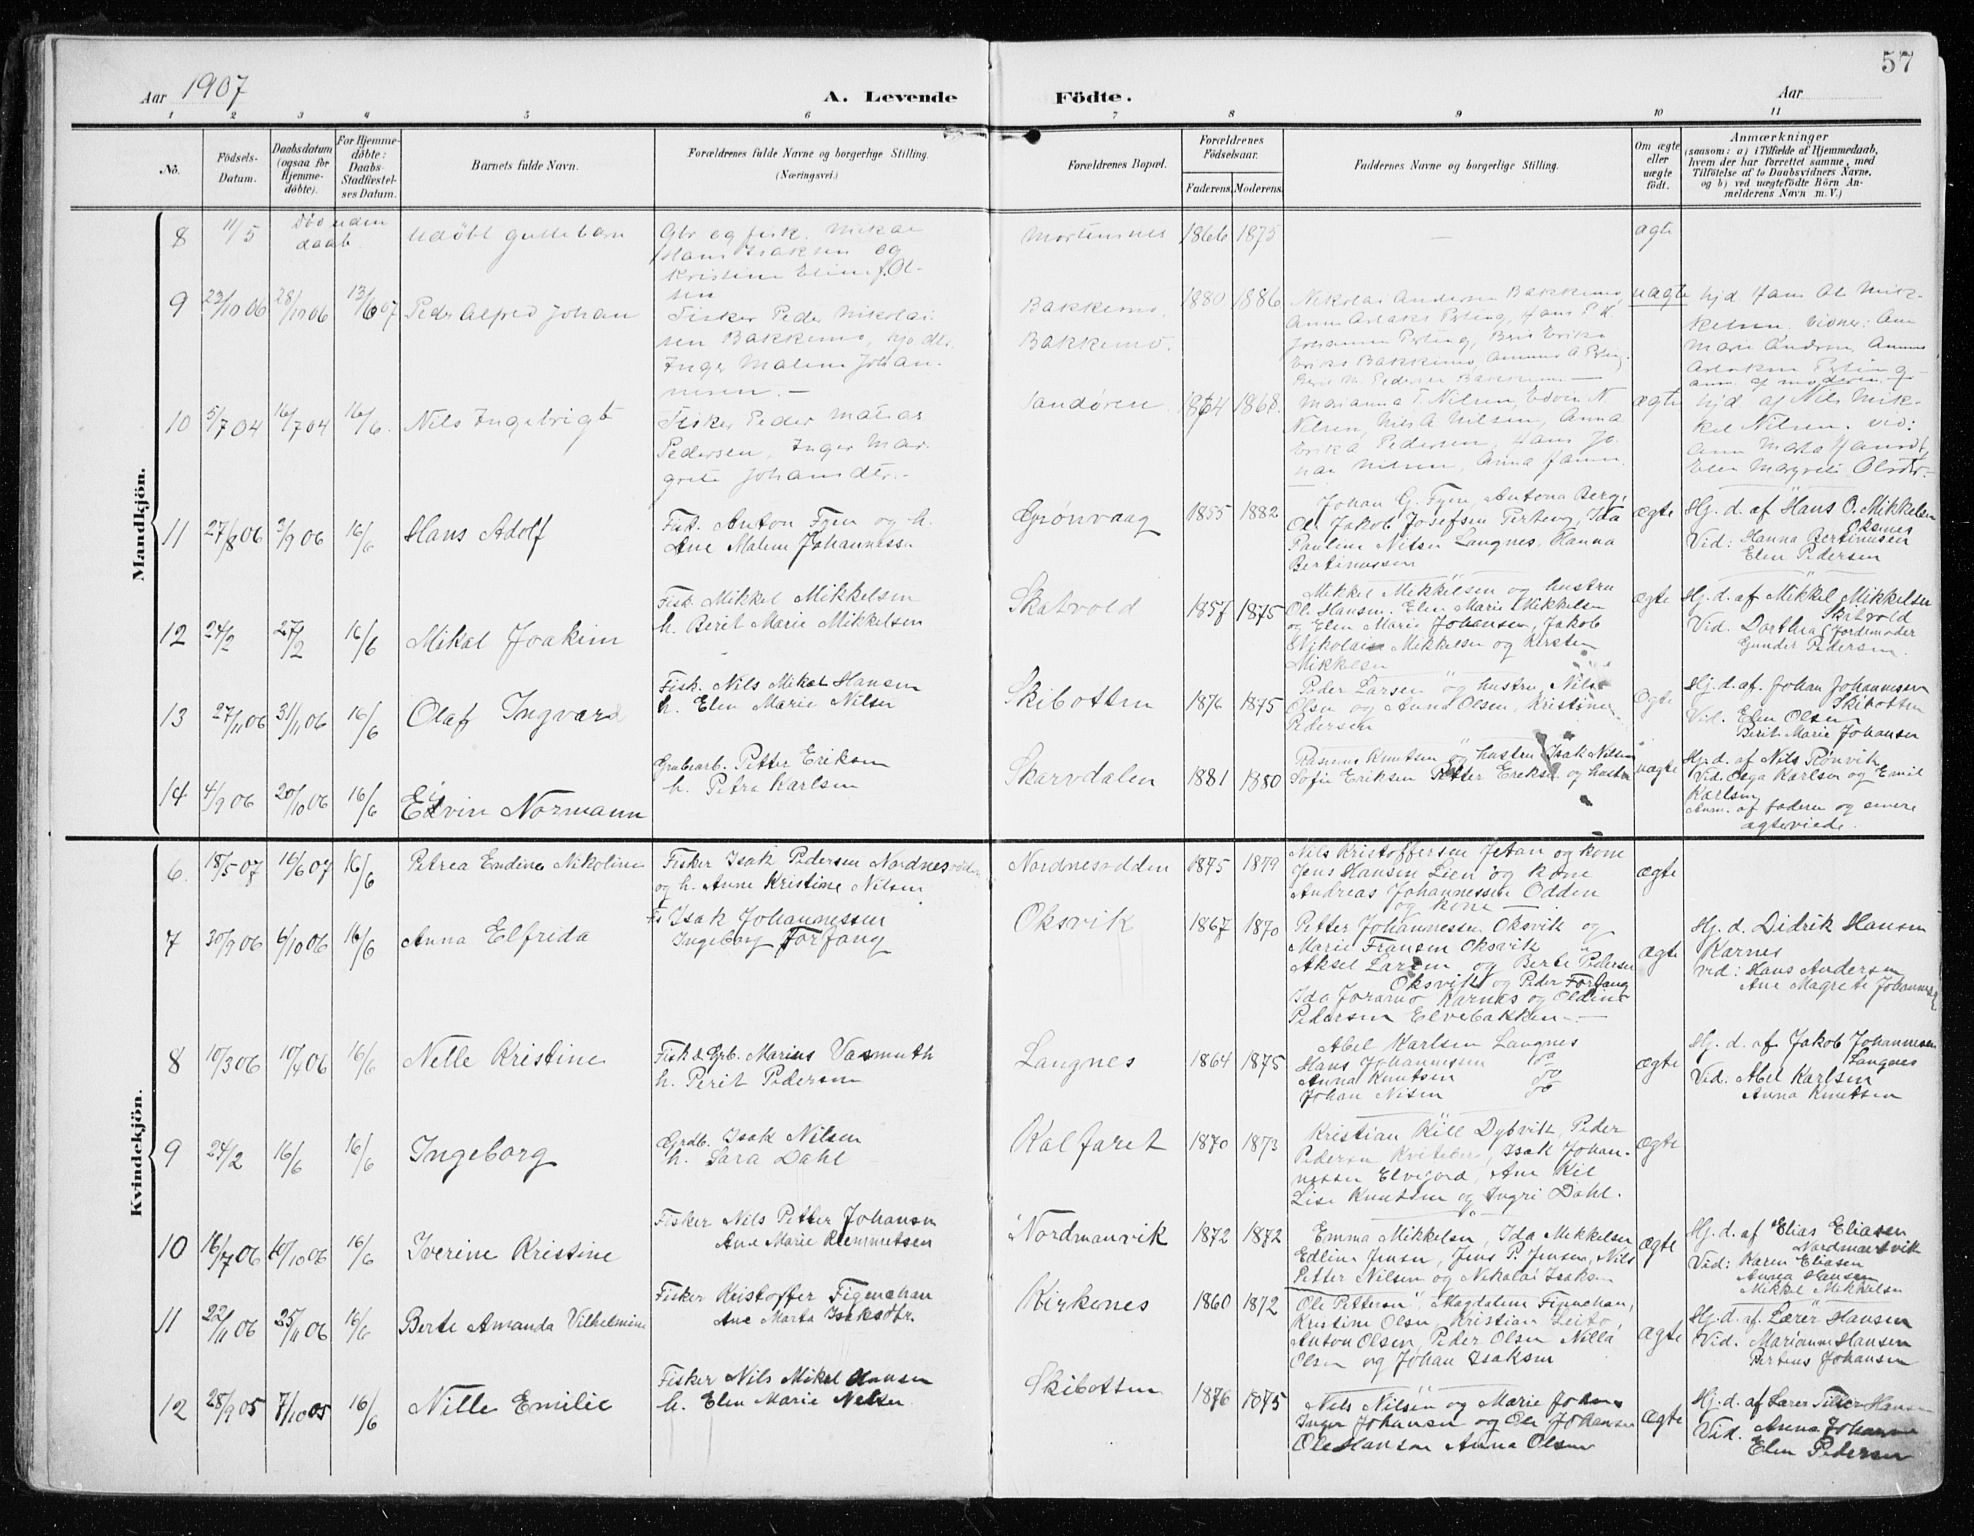 57
Aar 1907
A. Levende Födte.
Aar
1 2 3 4 5 6 7 8 9 10 11
No.
Födsels-Datum.
Daabsdatum (ogsaa for Hjemme-döbte).
For Hjemme-döbte: Daabs-Stadfæstel-ses Datum.
Barnets fulde Navn.
Forældrenes fulde Navne og borgerlige Stilling.
(Næringsvei.)
Forældrenes Bopæl.
Forældrenes Födselsaar.
Faderens. Moderens.
Faddernes Navne og borgerlige Stilling.
Om ægte eller uægte födt.
Anmærkninger
(saasom: a) i Tilfælde af Hjemmedaab,
hvem der har forrettet samme, med
Tilföielse af to Daabsvidners Navne,
og b) ved uægtefödte Börn An-
melderens Navn m. V.)
Mandkjön.
8 11/5 Død uden daab. Udøbt guttebarn
Gbr og fisk. Mikal
Hans Isaksen og
Kristine Eline f. Ol-
sen
Mortensnes 1866 1875 — ægte
9 23/10 06 28/10 06 13/6 07 Peder Alfred Johan
Fisker Peder Nikolai
sen Bakkemo,
Inger Malene Johan-
nesen. —
Bakkemo.
Bakkemo.
1880 1886
Nikolai Andersen Bakkemo,
uægte
hjd. Hans Ol Mik-
kelsen. Vidner: Ane
Marie Andersen,
anm. af moderen
10 5/7 04 16/7 04 16/6. Nils Ingebrigt
Fisker Peder Matias
Pedersen, Inger Mar-
grete Johansdtr. -
Sandøren. 1864 1868.
Marianna T. Nilsen, Edvin N.
Nilsen, Nils A Nilsen, Anna
Erika Pedersen, Hans Jo-
han Nilsen, Anna
ægte
hjd af Nils Mik-
kel Nilsen. vid:
Ane Marta
Elen Margrete Olsdtr. -
11 27/8 06 2/9 06 16/6 Hans Adolf
Fisk. Anton Fyen og h.
Lene Malene Johannessen
Grønvaag 1855 1882
Johan G. Fyen, Antona Berg,
Ole Jakob Josefsen Perteng, Ida
Pauline Nilsen Langnes, Hanna
Bertinussen
ægte
Hj. d. af Hans O. Mikkelsen
Oksnes
Vid: Hanna Bertinusen
Elen Pedersen
12 24/2 27/2 16/6 Mikal Joakim
Fisk. Mikkel Mikkelsen
h. Berit Marie Mikkelsen
Skatvold 1857 1875
Mikkel Mekkelsen og hustru
Ole Hansen. Elen Marie Mikkelsen
og Elen Marie Johansen, Jakob
Nikolai Mekkelsen og Kirsten
Mikkelsen
ægte
Hj. d. af Mikkel Mikkelsen
Skatvold
Vid. Dorthea (Jordemoder
Gunder Pedersen.
13 27/11 06 31/11 06 16/6 Olaf Ingvard
Fisk. Nils Mikal Hansen
h. Elen Marie Nilsen
Skibotten 1876 1875
Peder Larsen og hustru, Nils
Olsen og Anna Olsen, Kristine
Pedersen
Ægte
Hj. d. af. Johan Johannesen
Skibotten
Vid. Elen Olsen
Berit Marie Johansen
14 4/9 06 20/10 06 16/6 Edvin Normann
Grubearb. Petter Eriksen
h. Petra Karlsen
Skarvdalen 1881 1880
Rasmus Knutsen og hustru Isak Nilsen
Sofie Eriksen Petter Ereksen og hustru
uægte
Hj. d. af Nils Rönvik
Vid. Olga Karlsen og Emil
Karlsen
Anm. af faderen og senere
ægteviede.
Kvindekjön.
6. 18/5 07 16/6 07 16/6 Petrea Emdine Nikoline
Fisker Isak Pedersen Nordnesodden
og h. Anne Kristine Nilsen
Nordnesodden 1875 1879
Nils Kristoffersen Jetan og kone
Jens Hansen Lien og kone
Andreas Johannessen Odden
og kone —
ægte
7 30/9 06 6/10 06 16/6 Anna Elfrida
Fi Isak Johannessen
Ingeborg Forfang
Oksvik 1867 1870
Petter Johannessen Oksvik og
Marie Fransen Oksvik
Aksel Larsen og Berte Pedersen
Oksvik og Peder Forfang
Ida Joramo Karnes og Oldine
Pedersen Elvebakken -.-
ægte
Hj. d. Didrik Hansen
Karnes
vid: Hans Andersen
Ane Magrete Johannesen
8 10/3 06 10/4 06 16/6 Nelle Kristine
Fisk & Grb. Marius Vasmuth
h. Perit Pedersen
Langnes 1864 1875
Abel Karlsen Langnes
Hans Johannessen do
Anna Knutsen do
Johan Nilsen do
ægte
Hj. d. af Jakob Johannesen
Langnes
Vid: Abel Karlsen
Anna Knutsen
9 24/2 16/6 16/6 Ingeborg
Grdb. Isak Nilsen
h. Sara Dahl
Kalfaret 1870 1873
Kristian Kiil Dybvik, Peder
Pedersen Kviteberg, Isak Johan-
nessen Elvejord, Ane Kiil
Lise Knutsen og Ingri Dahl.
ægte
10 16/7 06 10/10 06 16/6 Iverine Kristine
Fisker Nils Petter Johansen
Ane Marie Klemmetsen
Nordmanvik 1872 1872
Emma Mikkelsen, Ida Mekkelsen
Edline Jensen, Jens P. Jensen, Nils
Petter Nilsen og Nekolai Isaksen
ægte
Hj. d. af Elias Eliasen
Nordmanvik
Vid: Karen Eliasen
Anna Hansen
Mikkel Mekkelsen
11 22/11 06 25/11 06 16/6 Berte Amanda Vilhelmine
Fisker Kristoffer Figenahan
Ane Marta Isaksdtr.
Kirkenes 1860 1872
Ole Pettersen, Magdalene Finnehan,
Kristine Olsen, Kristian Leito,
Anton Olsen, Peder Olsen Nilla
Olsen og Johan Isaksen
ægte
Hj. d. af. Lærer Hansen
Vid. Marianne Hansen
Bertins Johansen
12 28/9 05 7/10 05 16/6 Nille Emilie
Fisker Nils Mikal Hansen
h. Elen Marie Nelsen
Skibotten 1876 1875
Nils Nilsen og Marie Johans
Inger Johansen og Ole Johansen
Ole Hansen Anna Olsen
ægte
Hj. d. af Lærer Hansen
Vid. Anna Johansen
Elen Pedersen